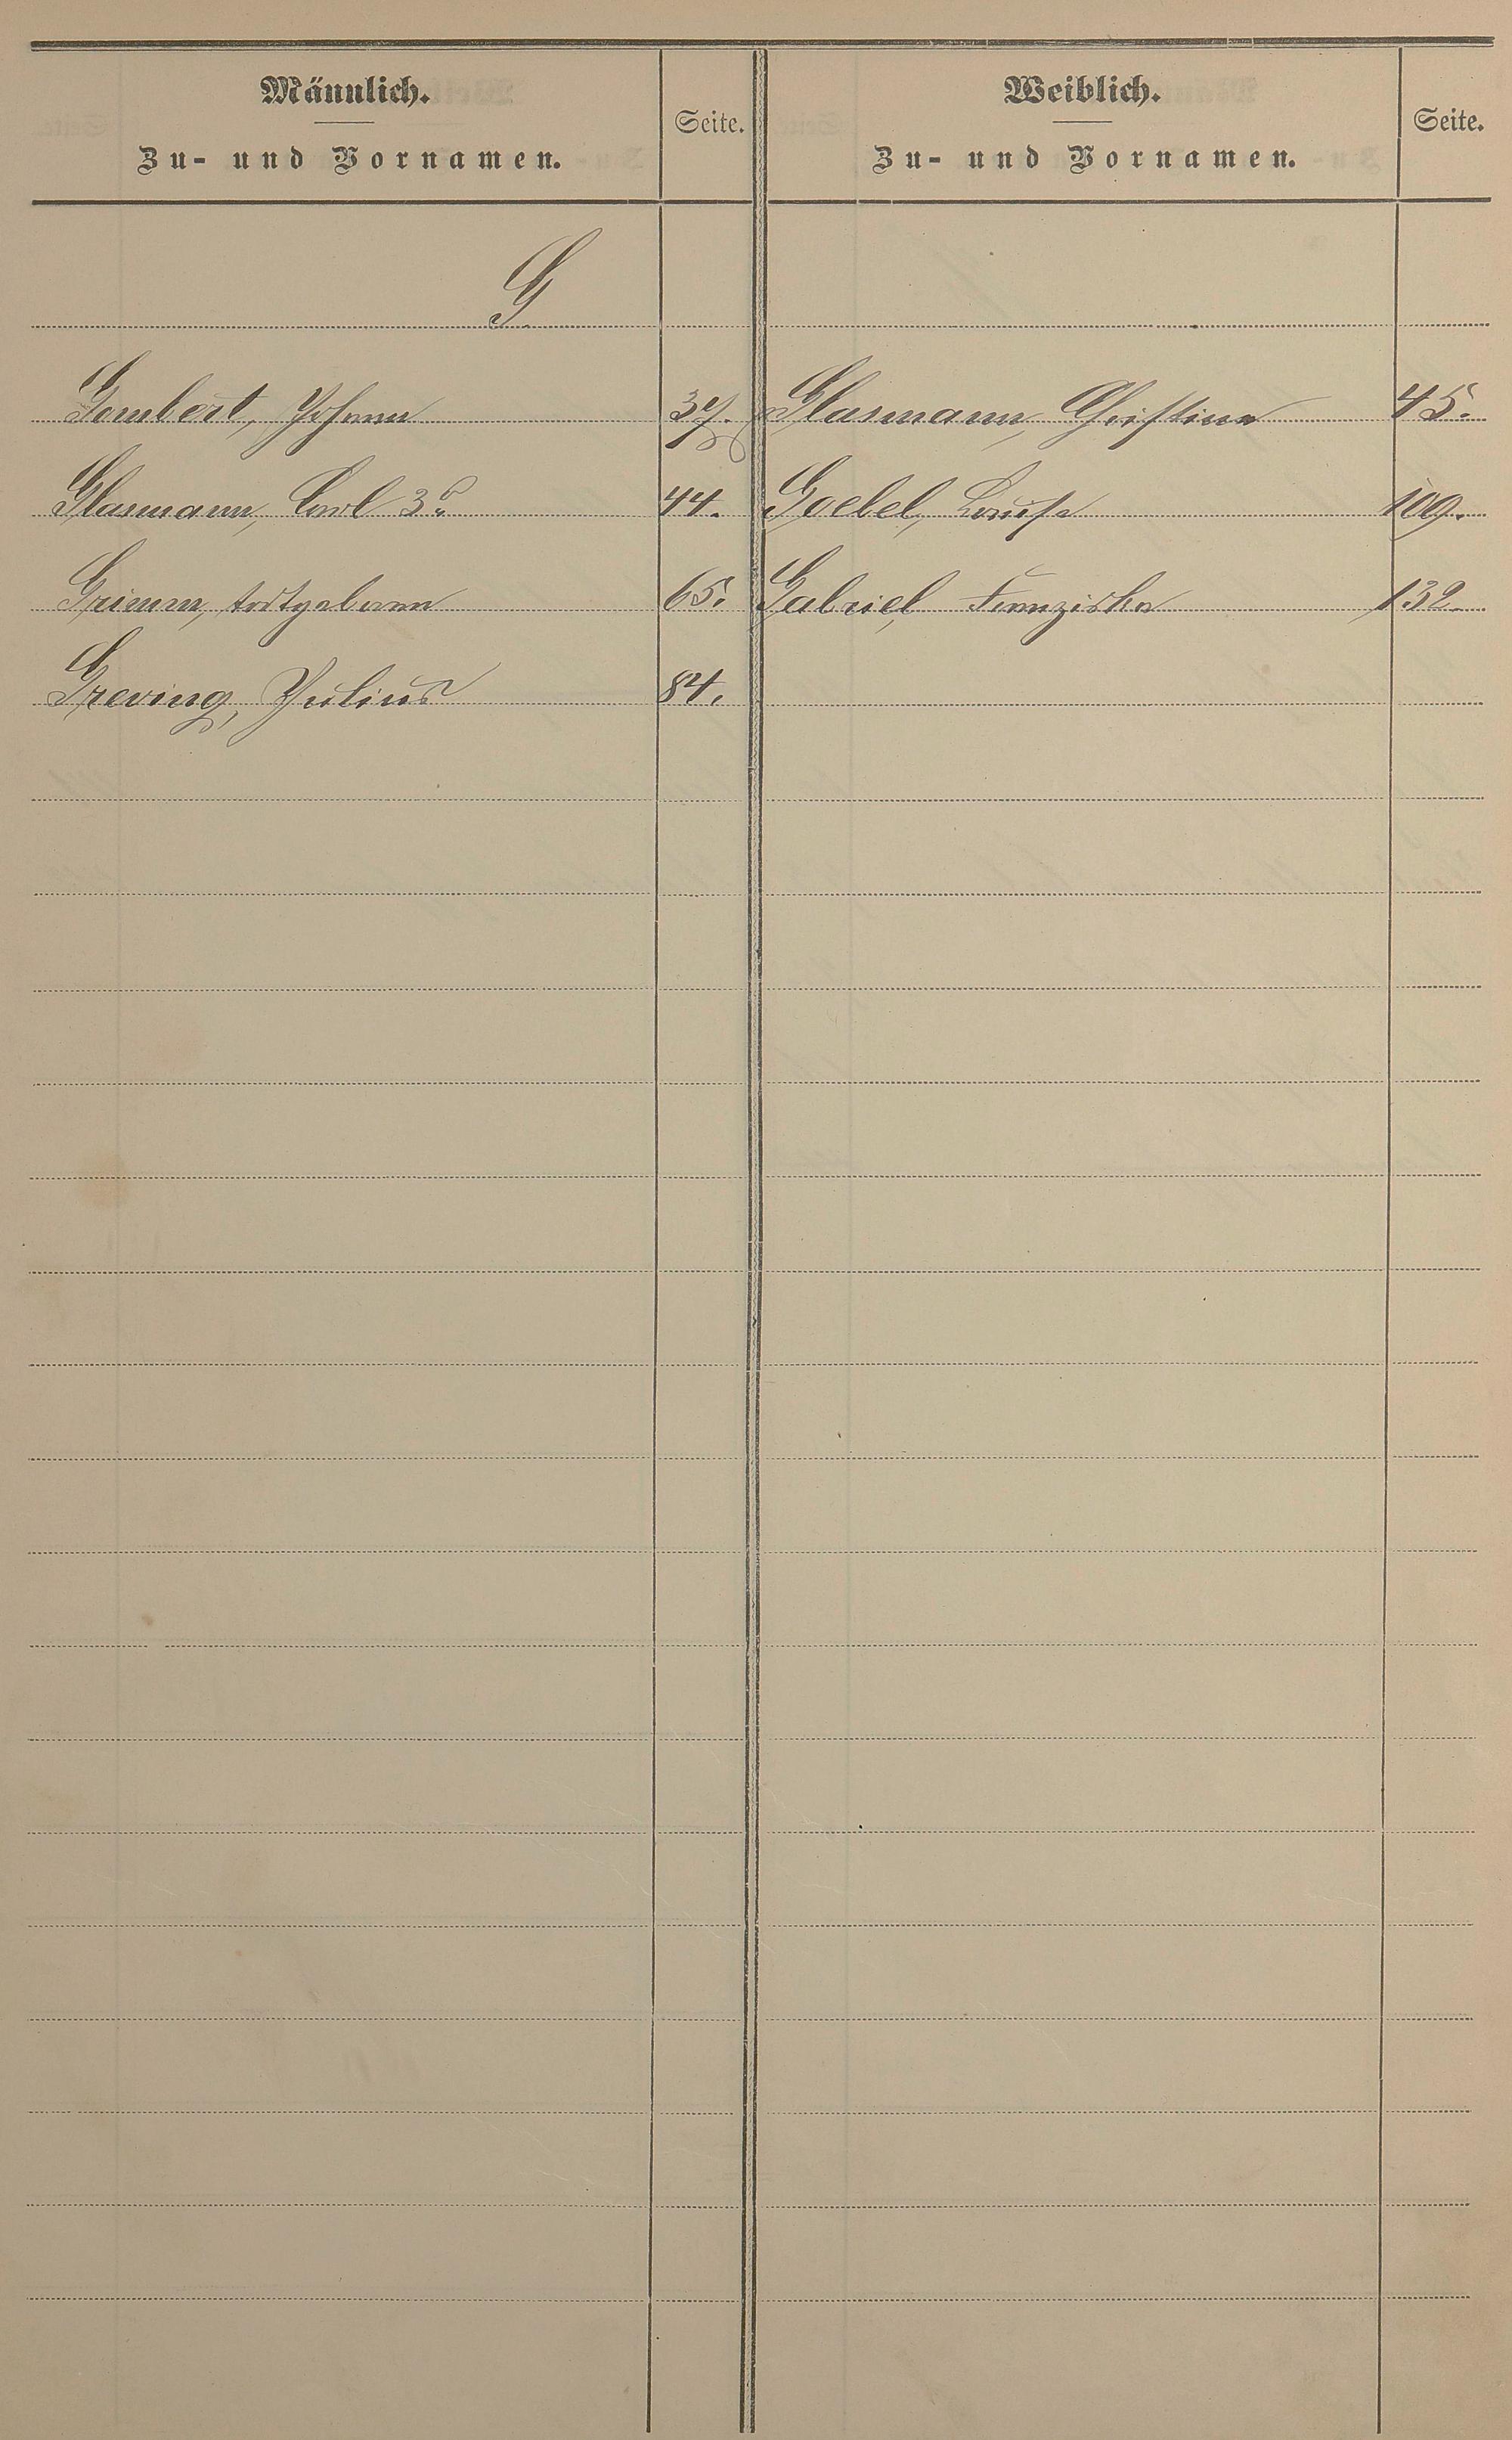 Männlich.
Zu- und Vornamen.
Seite.
Weiblich.
Zu- und Vornamen.
Seite.
G
Gombert, Johann 37.
Glasmann, Christina 45.
Glasmann, Carl 3r 44.
Goebel, Louise 109.
Grimm, todtgeboren 65.
Gabriel, Franziska 132
Greving, Julius 84.